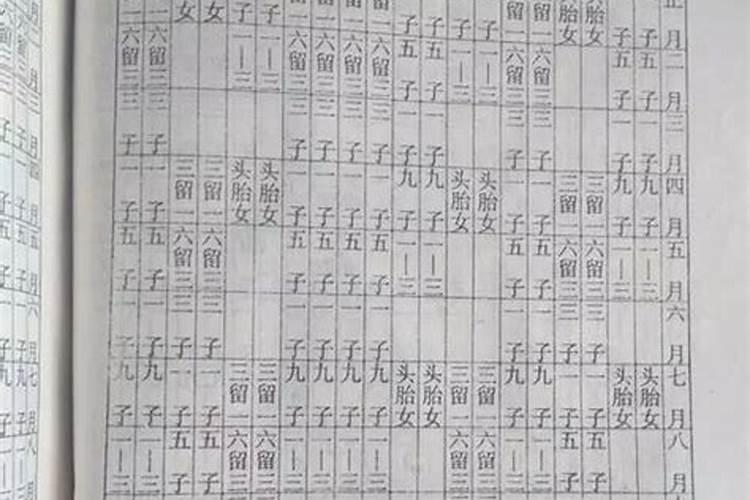 月二月三月四月五月六月七月八月
子五子一子九子一｜三头胎女
子五子一子九子一｜三头胎女
胎女三留一六留三三子一子五子
胎女三留一六留三三子一子五子
留一六留三三子一子五子一子九子一｜三
留一六留三三子一子五子一子九子一｜三
子一｜三头胎女三留一六留三
子一｜三头胎女三留一六留三
子五子一子九子一｜三头胎女
子五子一子九子一｜三头胎女
留一六留三三子一子五子一子九子一｜三
留一六留三三子一子五子一子九子一｜三
留一六留三三子一子五子一子九子一｜三
留一六留三三子一子五子一子九子一｜三
子一｜三头胎女三留一六留三
子一｜三头胎女三留一六留三
女三留一六留三三子一子五子
女三留一六留三三子一子五子
一六留三三子一子五子一子九子一｜三
一六留三三子一子五子一子九子一｜三